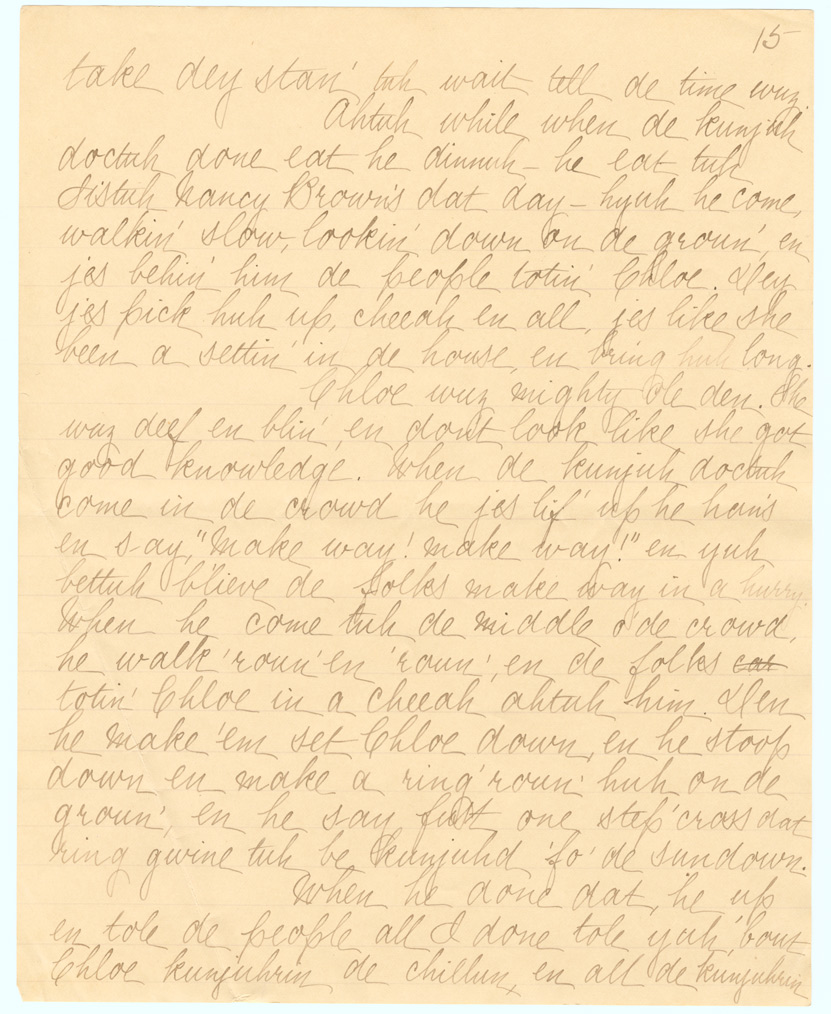 15
take dey stan' tuh wait tell de time wuz.
Ahtuh while when de kunjuh
doctuh done eat he dinnuh – he eat tuh
Sistuh Nancy Brown's dat day – hyuh he come,
walkin' slow, lookin' down on de groun', en
jes behin' him de people totin' Chloe. Dey
jes pick huh up, cheeah en all, jes like she
been a settin' in de house, en bring huh long.
Chloe wuz mighty ole den. She
wuz deef en blin', en don't look like she got
good knowledge. When de kunjuh doctuh
come in de crowd he jes lif' up he han's
en say, "Make way! make way!" en yuh
bettuh b'lieve de folks make way in a hurry.
When he come tuh de middle o' de crowd,
he walk 'roun' en 'roun', en de folks car
totin' Chloe in a cheeah ahtuh him. Den
he make 'em set Chloe down, en he stoop
down en make a ring 'roun' huh on de
groun', en he say fust one step 'cross dat
ring gwine tuh be kunjuhd 'fo' de sundown.
When he done dat, he up
en tole de people all I done tole yuh 'bout
Chloe kunjuhrin de chillun, en all de kunjuhrin